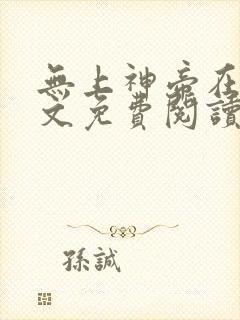 無上神帝在
文免費閱讀
孫誠